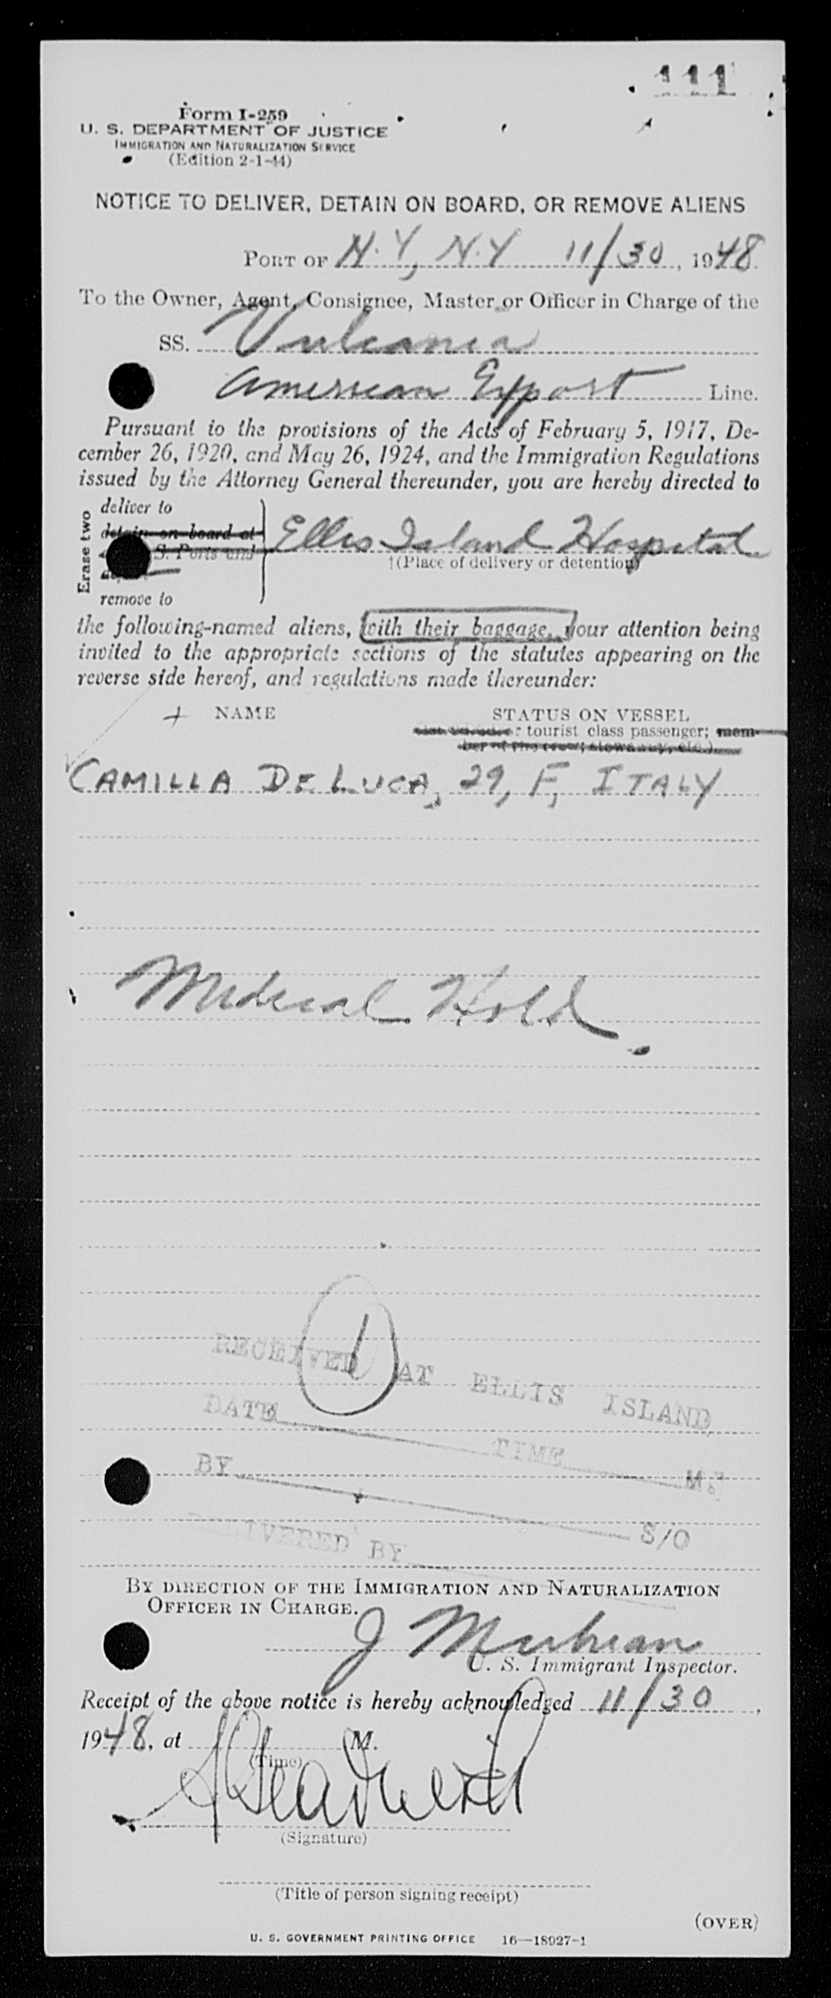 111
Form I-259
U. S. DEPARTMENT OF JUSTICE
IMMIGRATION AND NATURALIZATION SERVICE
(Edition 2-1-44)
NOTICE TO DELIVER, DETAIN ON BOARD, OR REMOVE ALIENS
PORT OF N.Y, N.Y 11/30, 1948.
To the Owner, Agent, Consignee, Master or Officer in Charge of the
SS. Vulcania
American Export Line.
Pursuant to the provisions of the Acts of February 5, 1917, De-
cember 26, 1920, and May 26, 1924, and the Immigration Regulations
issued by the Attorney General thereunder, you are hereby directed to
Erase two
deliver to
detain on board at
S. Ports and
remove to
Ellis Island Hospital
†(Place of delivery or detention)
the following-named aliens, with their baggage, your attention being
invited to the appropriate sections of the statutes appearing on the
reverse side hereof, and regulations made thereunder:
+ NAME STATUS ON VESSEL
tourist class passenger; mem-
ber of the crew; stowaway, etc.)
CAMILLA DE LUCA, 29, F, ITALY
Medical Hold.
1
RECEIVED AT ELLIS ISLAND
DATE TIME M.
BY S/O
DELIVERED BY
BY DIRECTION OF THE IMMIGRATION AND NATURALIZATION
OFFICER IN CHARGE.
J
U. S. Immigrant Inspector.
Receipt of the above notice is hereby acknowledged 11/30,
1948, at M.
(Time)
(Signature)
(Title of person signing receipt)
(OVER)
U. S. GOVERNMENT PRINTING OFFICE 16—18927-1